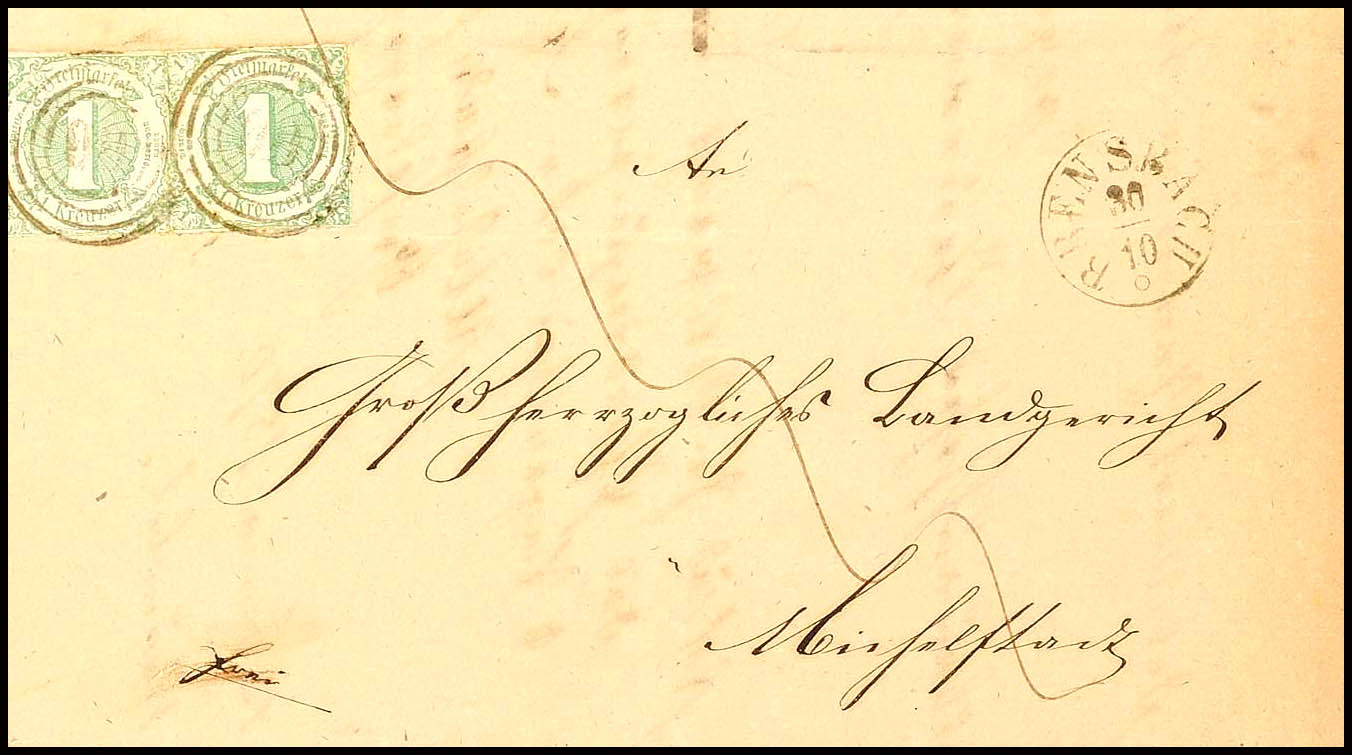 Freimarke
1
1. Kreuzer
Freimarke
1
1. Kreuzer
An
BRENSBACH
30
10
Großherzogliches Landgericht
Michelstadt
frei